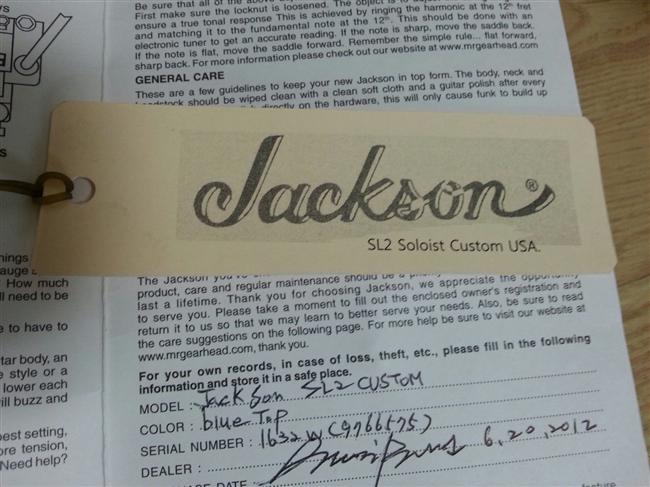 Be sure that all of the above
First make sure the locknut is loosened. The object is to
ensure a true tonal response This is achieved by ringing the harmonic at the 12th fret
and matching it to the fundamental note at the 12th. This should be done with an
electronic tuner to get an accurate reading. If the note is sharp, move the saddle back,
If the note is flat, move the saddle forward. Remember the simple rule... flat forward,
sharp back. For more information please check out our website at www.mrgearhead.com
GENERAL CARE
These are a few guidelines to keep your new Jackson in top form. The body, neck and
should be wiped clean with a clean soft cloth and a guitar polish after every
directly on the hardware, this will only cause funk to build up
Jackson®
SL2 Soloist Custom USA.
The Jackson
product, care and regular maintenance should be a
last a lifetime. Thank you for choosing Jackson, we appreciate the opportunity
to serve you. Please take a moment to fill out the enclosed owner's registration and
return it to us so that we may learn to better serve your needs. Also, be sure to read
the care suggestions on the following page. For more help be sure to visit our website at
www.mrgearhead.com, thank you.
For your own records, in case of loss, theft, etc., please fill in the following
information and store it in a safe place.
MODEL : Jackson SL2 CUSTOM
COLOR : blue Top
SERIAL NUMBER : 1632W (9766575)
DEALER : 6,20,2012
DATE :
How much
ll need to be
e to have to
tar body, an
e style or a
lower each
ill buzz and
best setting,
ore tension,
Need help?